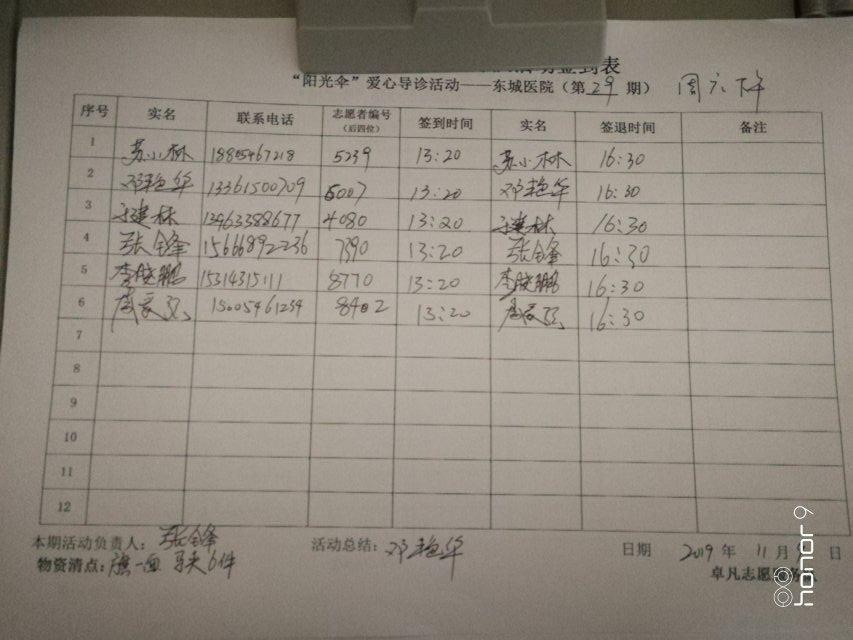 签到表
“阳光伞”爱心导诊活动——东城医院(第29期) 周六下午
序号 实名 联系电话 志愿者编号(后四位) 签到时间 实名 签退时间 备注
1 苏小林 18805467218 5239 13:20 苏小林 16:30
2 邓艳华 13361500709 6007 13:20 邓艳华 16:30
3 于建林 13463388677 4080 13:20 于建林 16:30
4 张锋 15666892236 7390 13:20 张锋 16:30
5 李晓鹏 15314315111 8770 13:20 李晓鹏 16:30
6 15005461234 8402 13:20 16:30
7
8
9
10
11
12
本期活动负责人:张锋 活动总结:邓艳华 日期 2019年11月9日
物资清点:旗一面 马夹6件 卓凡志愿
honor 9